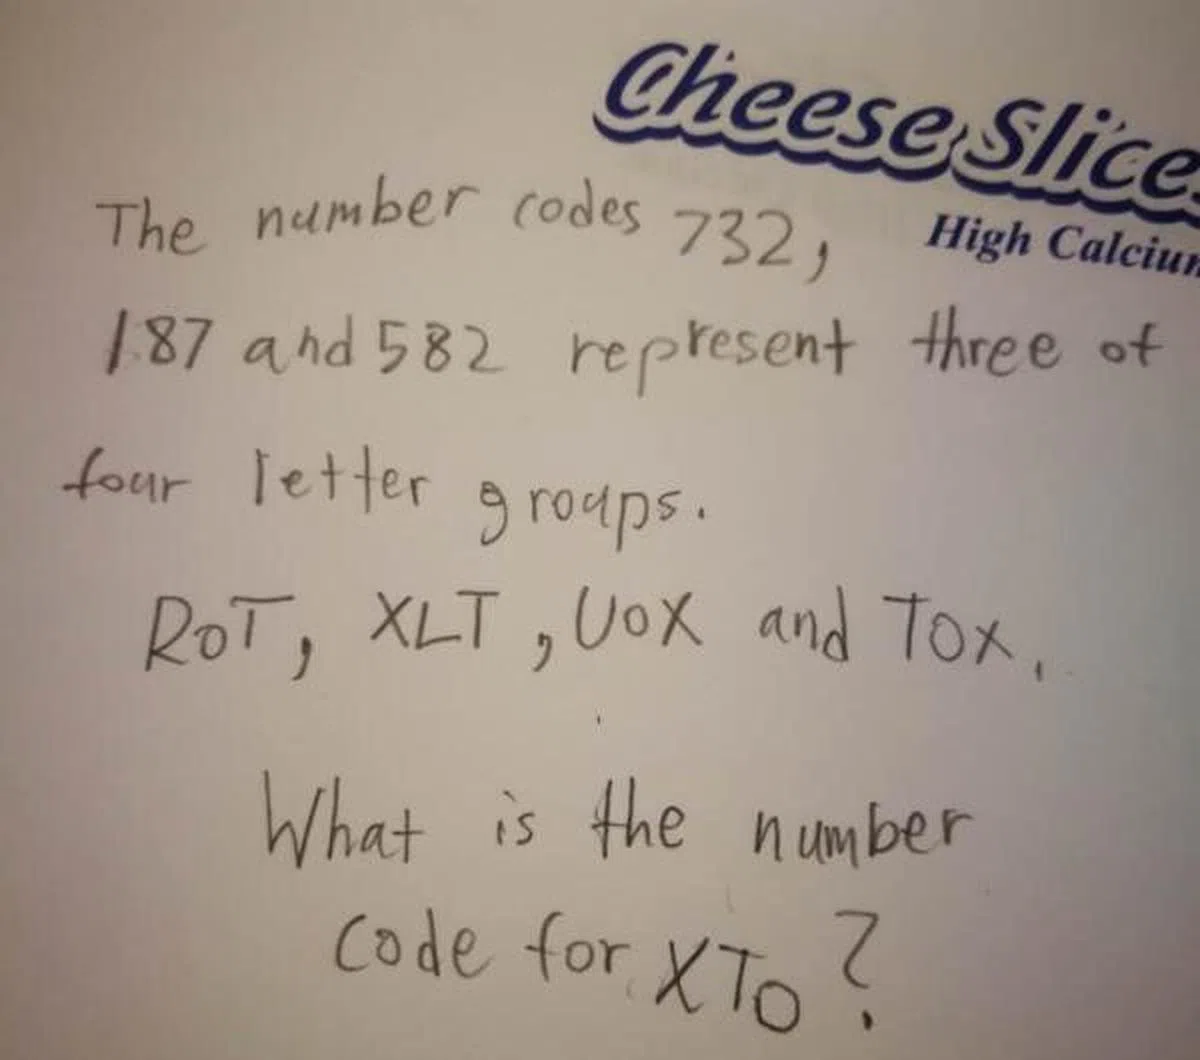 Cheese Slice
High Calcium
The number codes 732,
187 and 582 represent three of
four letter groups.
ROT, XLT, UOX and TOX.
What is the number
code for XTO?